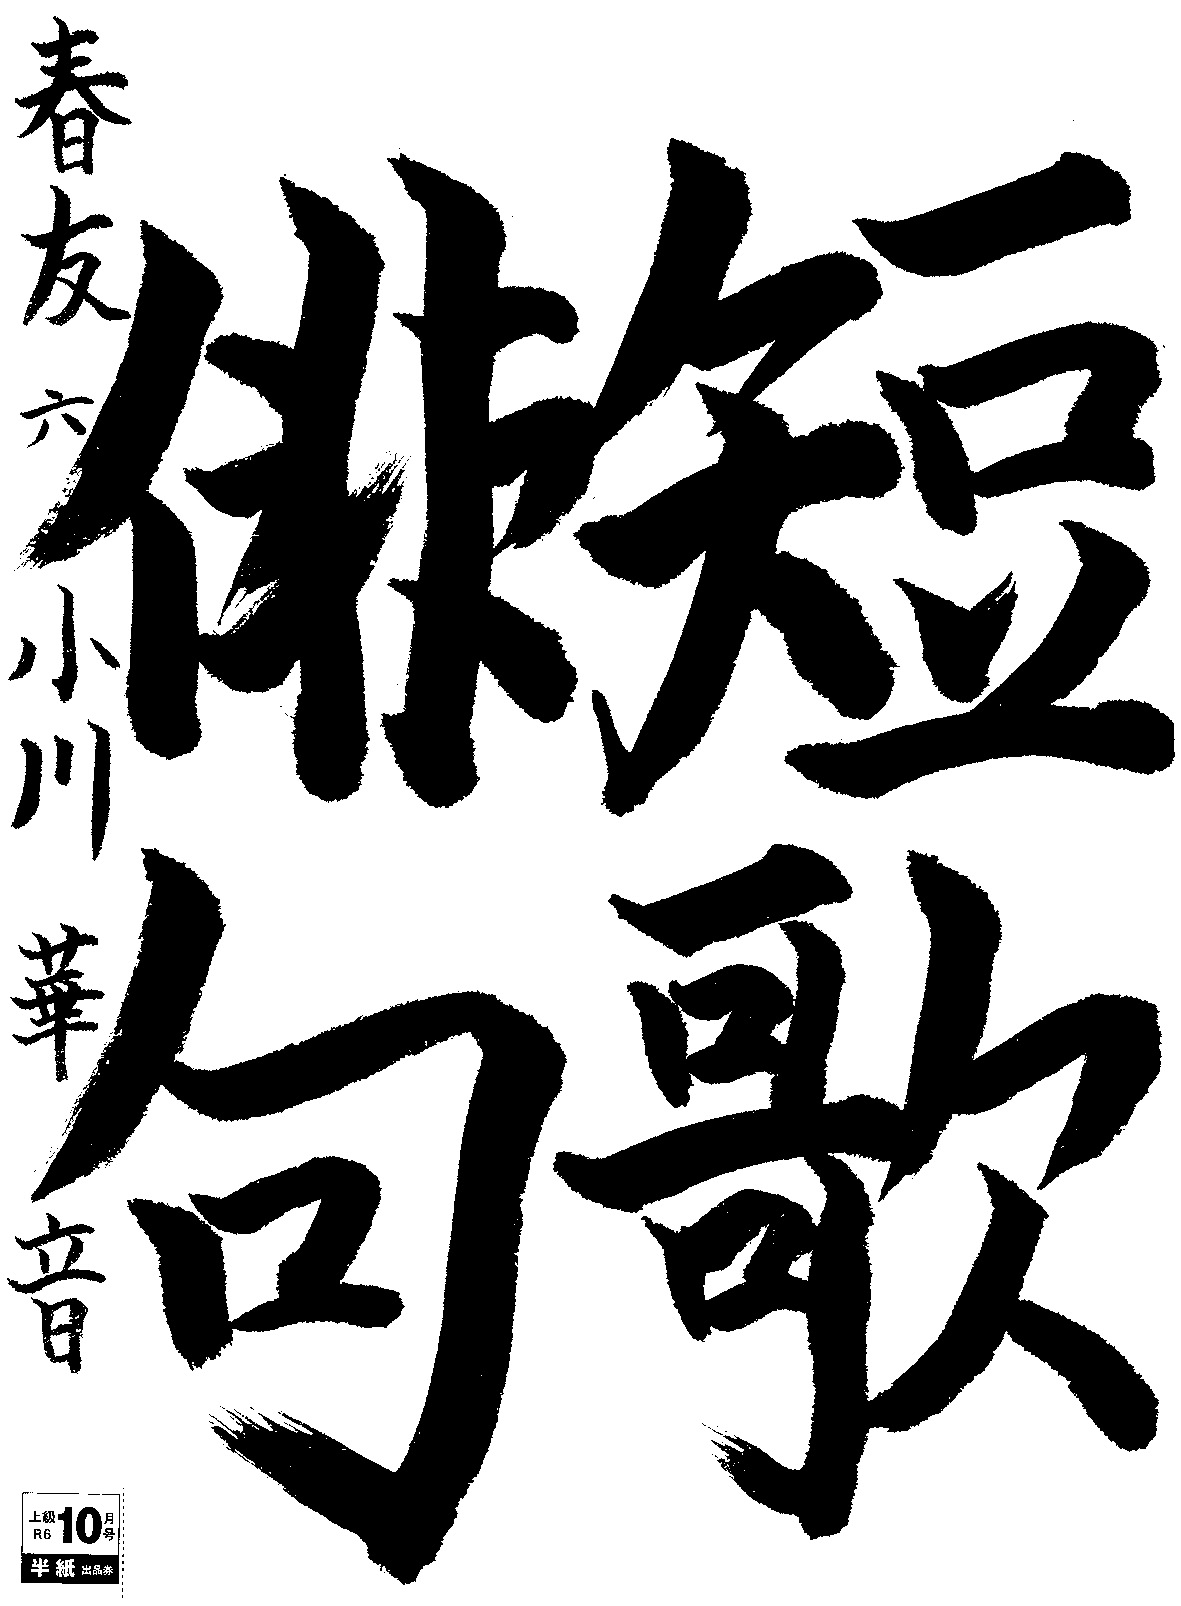 短歌
俳句
春友 六 小川 華音
上級 R6 10月号
半紙 出品券